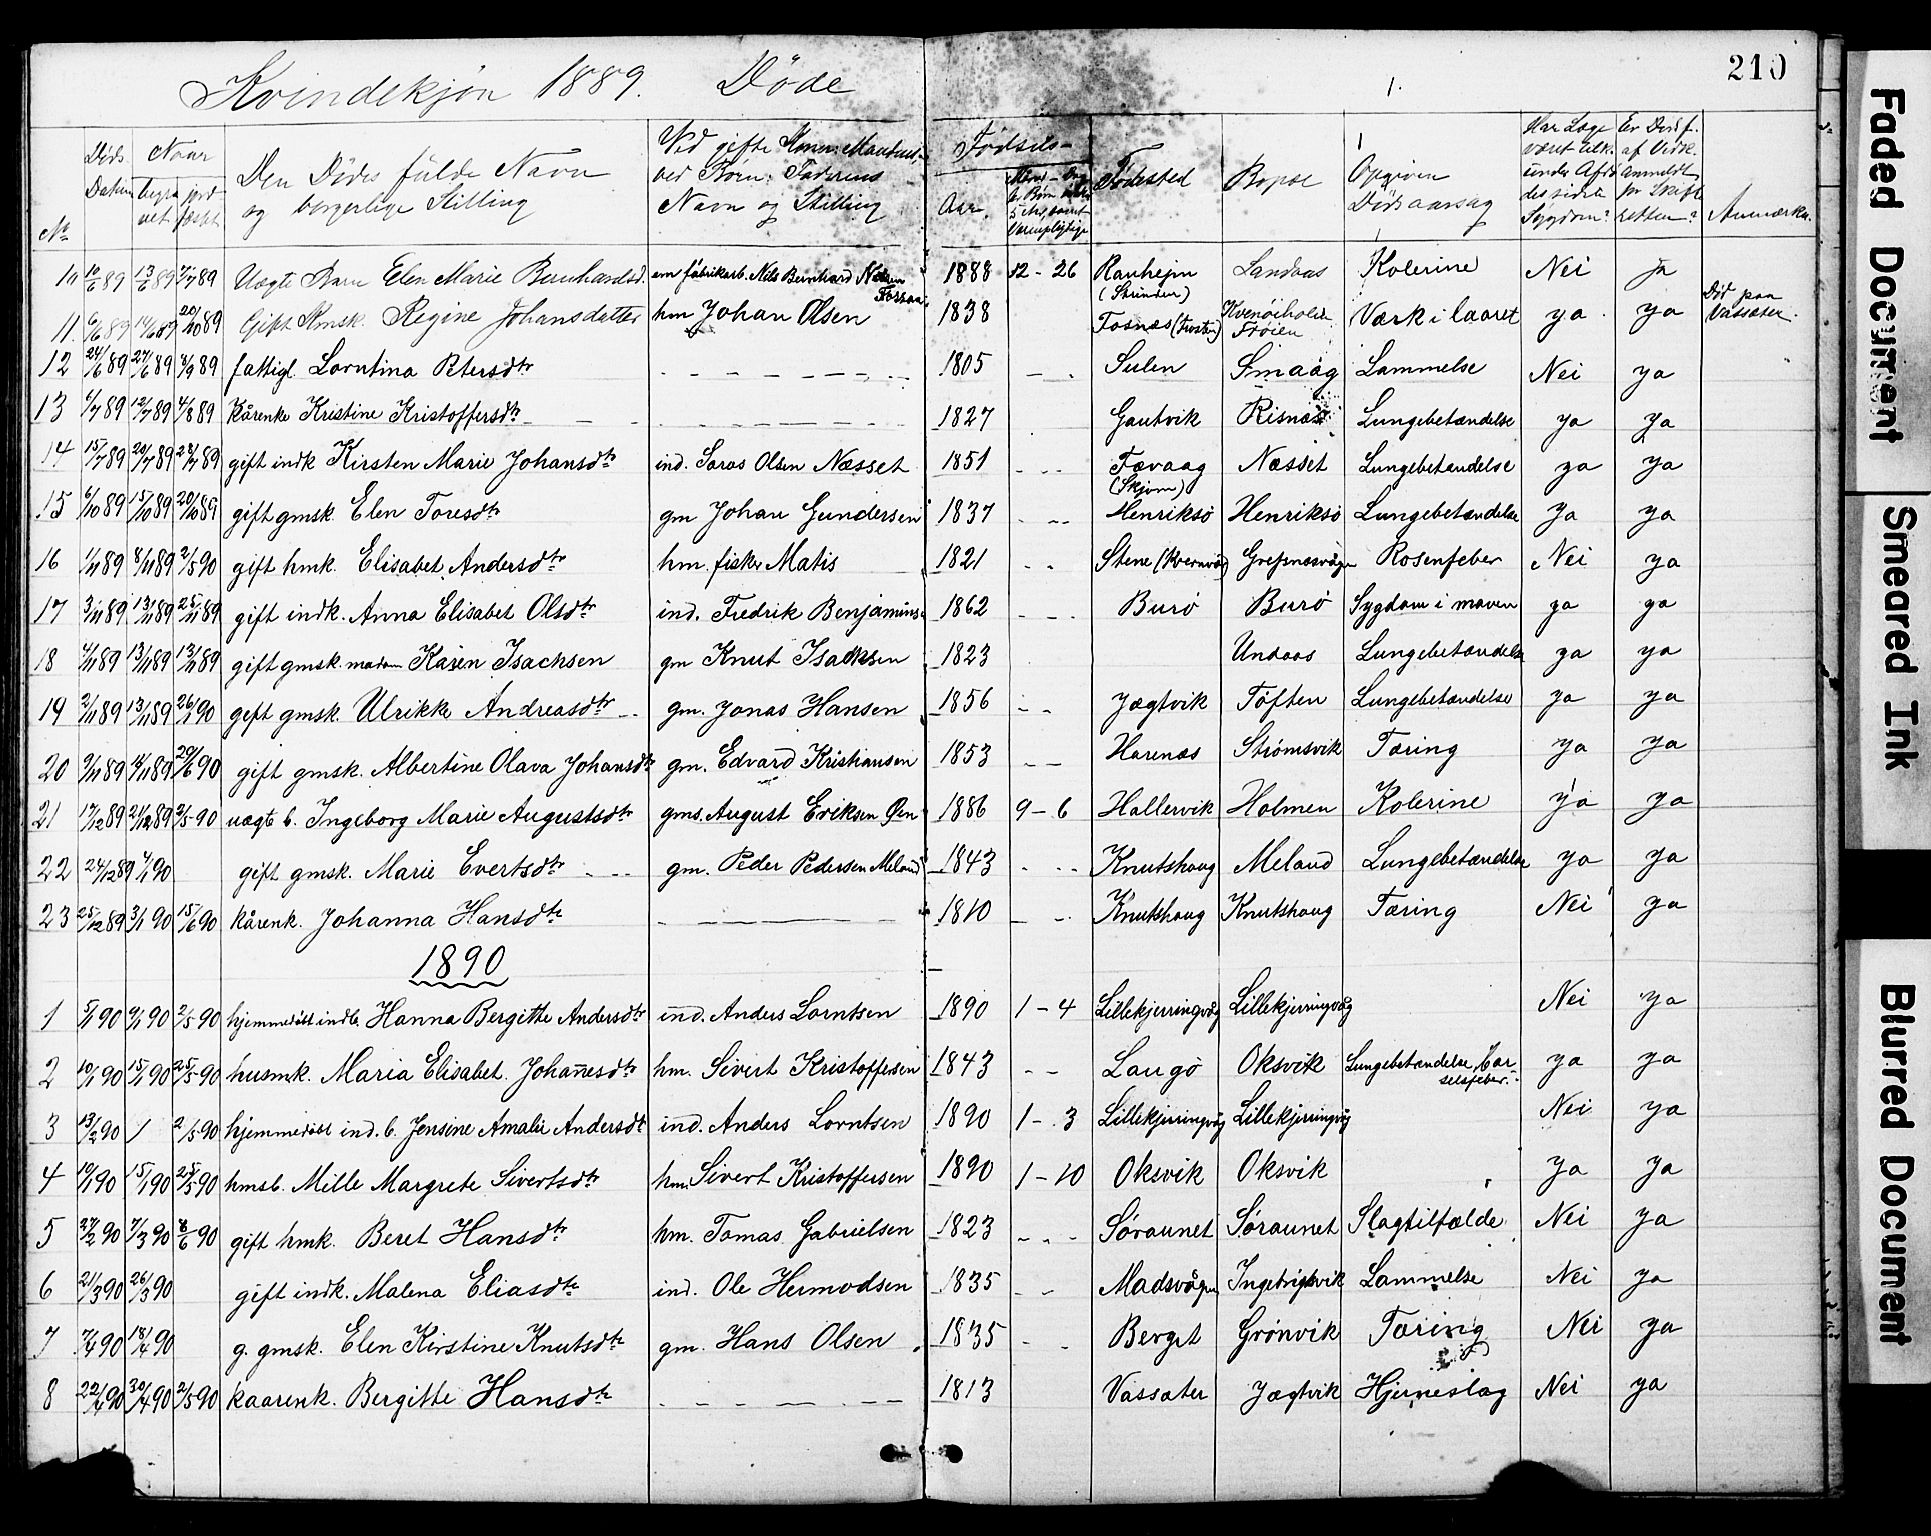 Kvindekjøn 1889. Døde
210
Døds Datum Naar begravet jordfæstet
Den Dødes fulde Navn og borgerlige Stilling
Ved gifte Koner: Mandens
ved Børn: Faderens
Navn og Stilling
Fødsels-
Aar.
Fødested
Bopæl
Opgiven Dødsaarsag
Anmærkn.
No
10 10/6 89 13/6 89 7/7 89 Uægte Barn Elen Marie Bernhardsd. em fabrikarb. Nils Bernhard Nielsen Fossaa 1888 12-26 Ranhejm (Strinden) Sandaas Kolerine Nei ja
11. 6/6 89 14/6 89 20/10 89 Gift Kmsk. Regine Johansdatter hm Johan Olsen 1838 Fosnæs (Fosten) Kvenøiholm Frøien Værk i laaret ya ya Død paa Vassæter.
12 24/6 89 27/6 89 8/9 89 fattigl. Lorntina Petersdtr 1805 Sulen Smaag Lammelse Nei ya
13 6/7 89 12/7 89 4/8 89 kårenke Kristine Kristoffersdtr 1827 Gautvik Risnæs Lungebetændelse ya ya
14 15/7 89 20/7 89 28/7 89 gift indk Kirsten Marie Johansdtr ind. Saras Olsen Næsset 1851 Tævaag (Skjørn) Næsset Lungebetændelse ya ya
15 6/10 89 15/10 89 20/10 89 gift gmsk. Elen Toresdtr gm Johan Gundersen 1837 Henriksø Henriksø Lungebetændelse ya ya
16 1/11 89 8/11 89 2/5 90 gift hmk. Elisabet Andersdtr hm. fisker Matis 1821 Stene (Kvernvåg) Grefsnæsvågen Rosenfeber Nei ya
17 3/11 89 13/11 89 25/11 89 gift indk. Anna Elisabet Olsdtr ind. Fredrik Benjamins. 1862 Burø Burø Sygdom i maven ya ya
18 4/11 89 13/11 89 13/11 89 gift gmsk. madam Karen Isachsen gm Knut Isachsen 1823 Undaas Lungebetændelse ya ya
19 2/11 89 13/11 89 26/1 90 gift gmsk. Ulrikke Andreasdtr gm. Jonas Hansen 1856 Jægtvik Tøften Lungebetændelse ya ya
20 9/11 89 14/11 89 29/6 90 gift gmsk. Albertine Olava Johansdtr gm. Edvard Kristiansen 1853 Harenæs Strømsvik Tæring ya ya
21 17/12 89 21/12 89 2/5-90 uægte b. Ingeborg Marie Augustsdtr gms. August Eriksen Øen 1886 9-6 Hallervik Holmen Kolerine ya ya
22 24/12 89 4/1 90 gift gmsk. Marie Evertsdtr gm. Peder Pedersen Meland 1843 Knutshaug Meland Lungebetændelse ya ya
23 25/12 89 3/1 90 15/6 90 kårenk. Johanna Hansdtr 1810 Knutshaug Knutshaug Tæring Nei ya
1890
1 5/1 90 9/1 90 2/5 90 hjemmedøbt indb. Hanna Bergitte Andersdtr ind. Anders Lorntsen 1890 1-4 Lillekjerringvåg Lillekjerringvåg Nei ya
2 10/1 90 15/1 90 25/5-90 husmk. Maria Elisabet Johan̄esdtr hm. Sivert Kristoffersen 1843 Langø Oksvik Lungebetændelse, Barselsfeber ya ya
3 13/2 90 1 2/5 90 hjemmedøbt ind. b. Jensine Amalie Andersdtr ind. Anders Lorntsen 1890 1-3 Lillekjerringvåg Lillekjerringvåg Nei ya
4 19/1 90 15/1 90 25/5 90 hmsb. Mille Margrete Sivertsdtr hm. Sivert Kristoffersen 1890 1-10 Oksvik Oksvik ya ya
5 27/2 90 7/3 90 8/6 90 gift hmk. Beret Hansdtr hm. Tomas Gabrielsen 1823 Søraunet Søraunet Slagtilfælde Nei ya
6 21/3 90 26/3 90 gift indk. Malena Eliasdtr ind. Ole Hermodsen 1835 Madsvågen Ingebrigtsvik Lammelse Nei ya
7 7/4 90 18/4 90 g. gmsk. Elen Kirstine Knutsdtr gm. Hans Olsen 1835 Berget Grønvik Tæring Nei ya
8 22/4 90 30/4 90 2/5 90 kaarenk. Bergitte Hansdtr 1813 Vassæter Jægtvik Hjerneslag Nei ya
Faded Document
Smeared Ink
Blurred Document